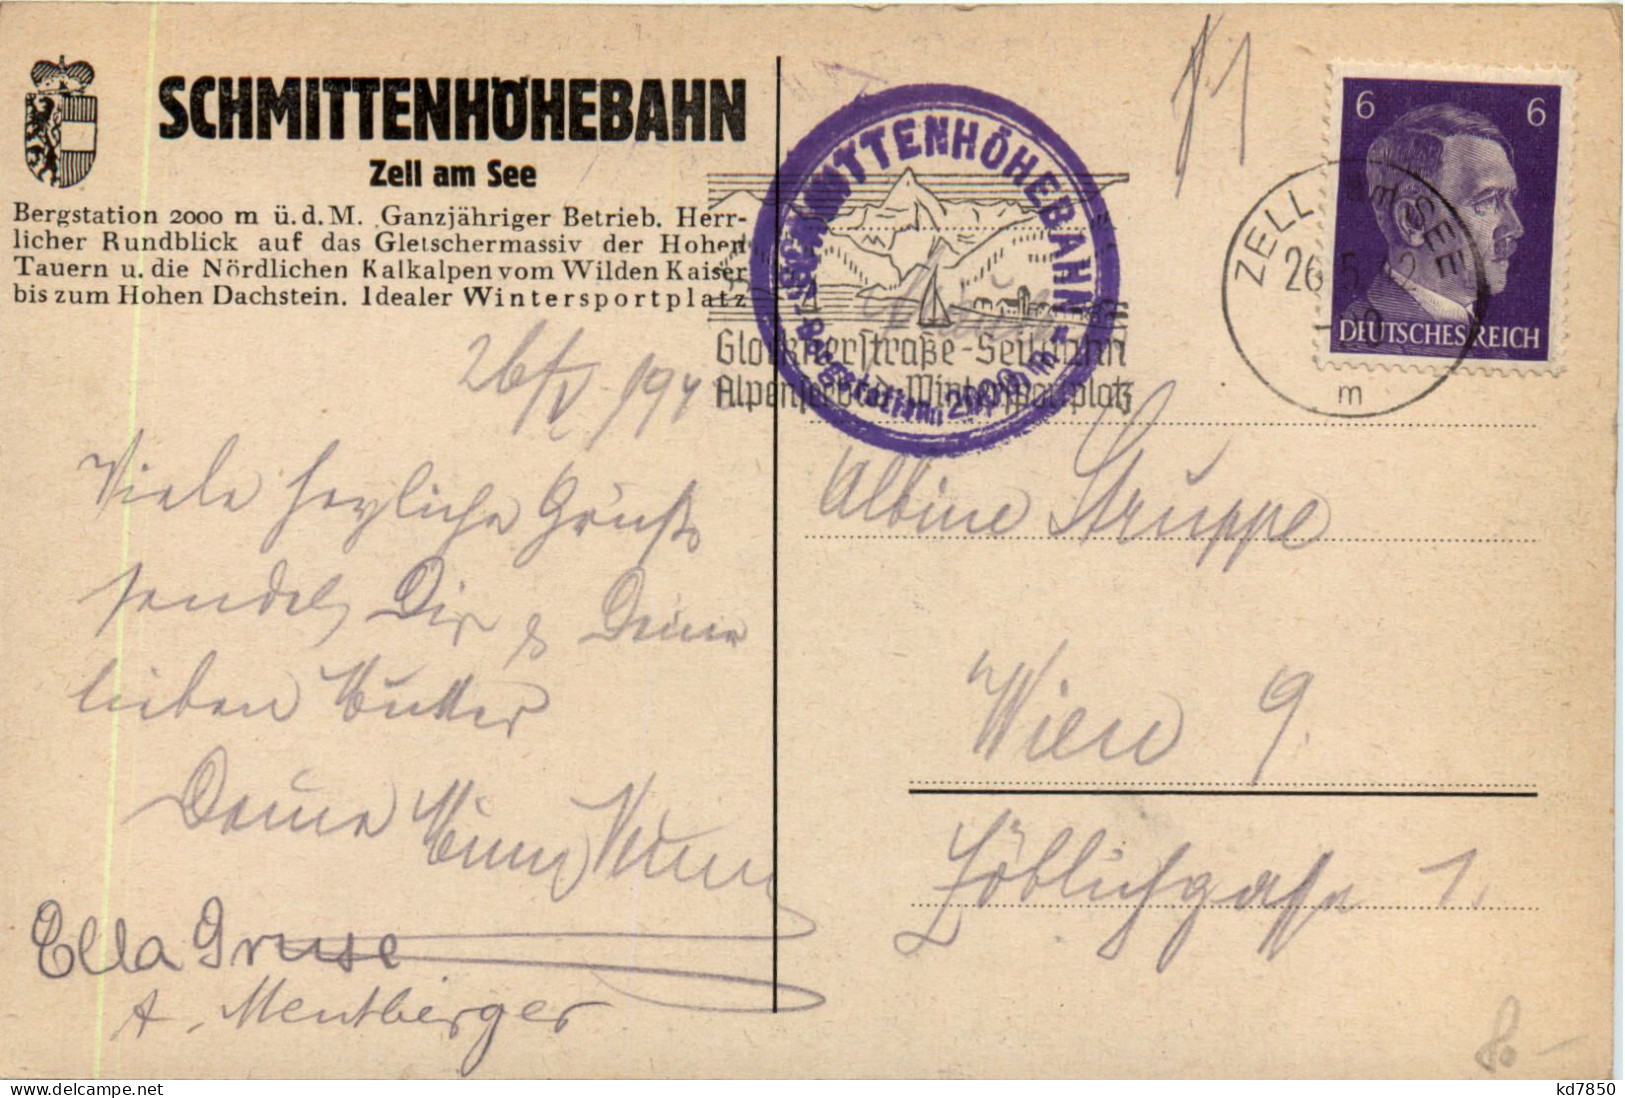 SCHMITTENHÖHEBAHN
Zell am See
Bergstation 2000 m ü.d.M. Ganzjähriger Betrieb. Herr-
licher Rundblick auf das Gletschermassiv der Hohen
Tauern u. die Nördlichen Kalkalpen vom Wilden Kaiser
bis zum Hohen Dachstein. Idealer Wintersportplatz
26/V. 194
Viele herzliche Grüße
sendet Dir & Deiner
lieben Mutter
Deine
Ella Gruse
A. Mentberger
SCHMITTENHÖHEBAHN
Bergstation 2000 m
Glocknerstraße-Seilbahn
Alpenseebad-Wintersportplatz
6 6
DEUTSCHES REICH
ZELL am SEE
26.5.42
m
Albine Struppe
Wien 9.
Löblichgasse 1.
80 -
www.delcampe.net
kd7850